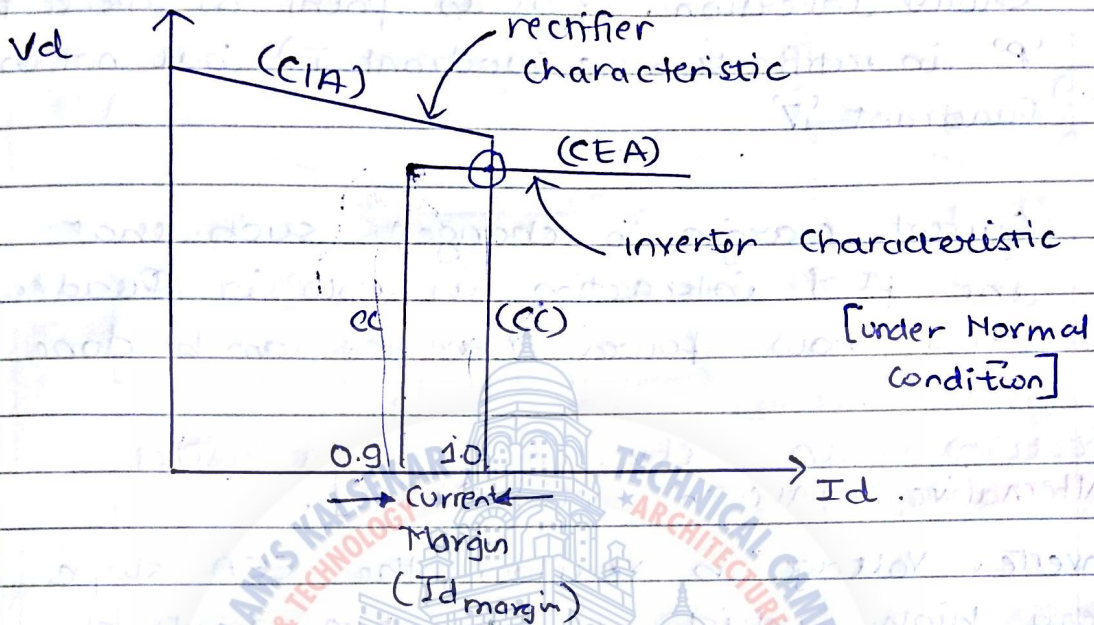 Vd
rectifier
characteristic
(CIA)
(CEA)
invertor Characteristic
cc
(CC)
[under Normal
Condition]
0.9
1.0
Id.
Current
Margin
(Id margin)
AM'S KALSEKAR TECHNICAL CAM
& TECHNOLOGY
ARCHITECTURE